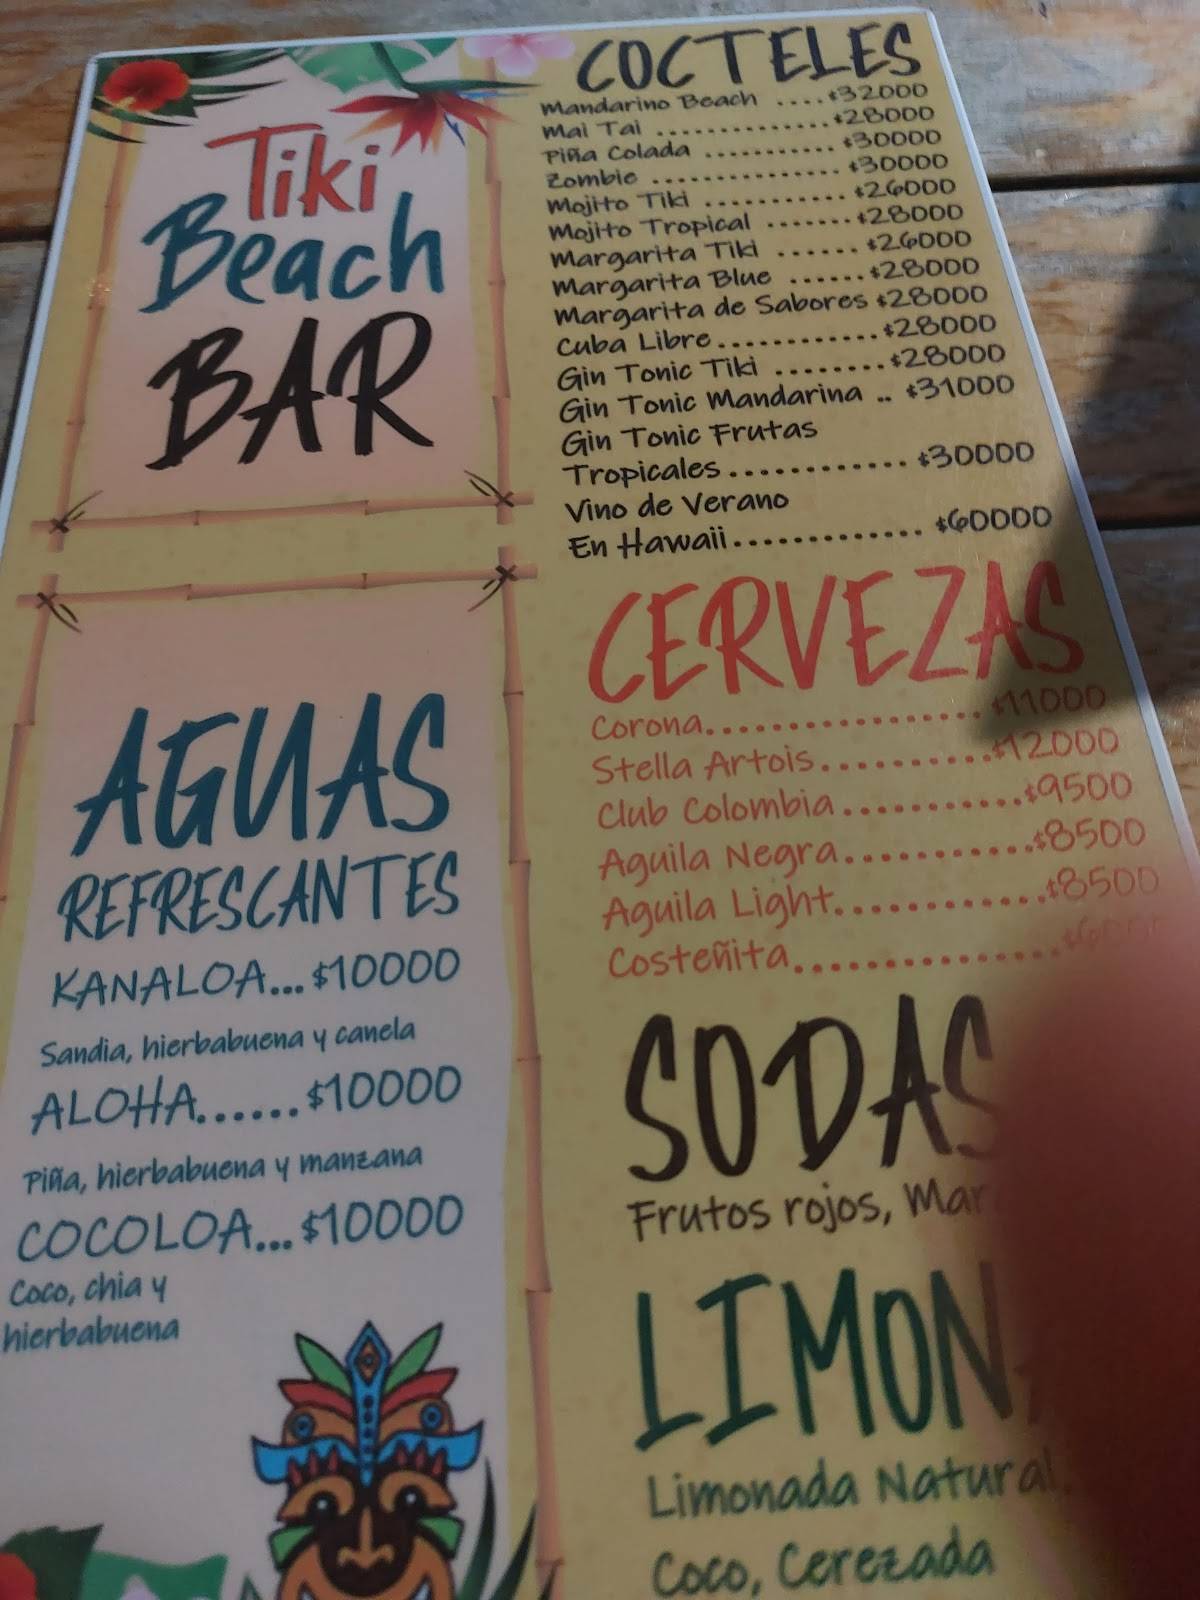 Tiki
Beach
BAR
AGUAS
REFRESCANTES
KANALOA...$10000
Sandia, hierbabuena y canela
ALOHA......$10000
Piña, hierbabuena y manzana
COCOLOA...$10000
Coco, chia y
hierbabuena
COCTELES
Mandarino Beach ....$32000
Mai Tai ..............$28000
Piña Colada ...........$30000
Zombie ................$30000
Mojito Tiki ...........$26000
Mojito Tropical .......$28000
Margarita Tiki ......$26000
Margarita Blue ......$28000
Margarita de Sabores $28000
Cuba Libre............$28000
Gin Tonic Tiki ........$28000
Gin Tonic Mandarina .. $31000
Gin Tonic Frutas
Tropicales............ $30000
Vino de Verano
En Hawaii............. $60000
CERVEZAS
Corona.................$11000
Stella Artois..........$12000
Club Colombia...........$9500
Aguila Negra............$8500
Aguila Light.............$8500
Costeñita................
SODAS
Frutos rojos,
Limonada Natural,
Coco, Cerezada